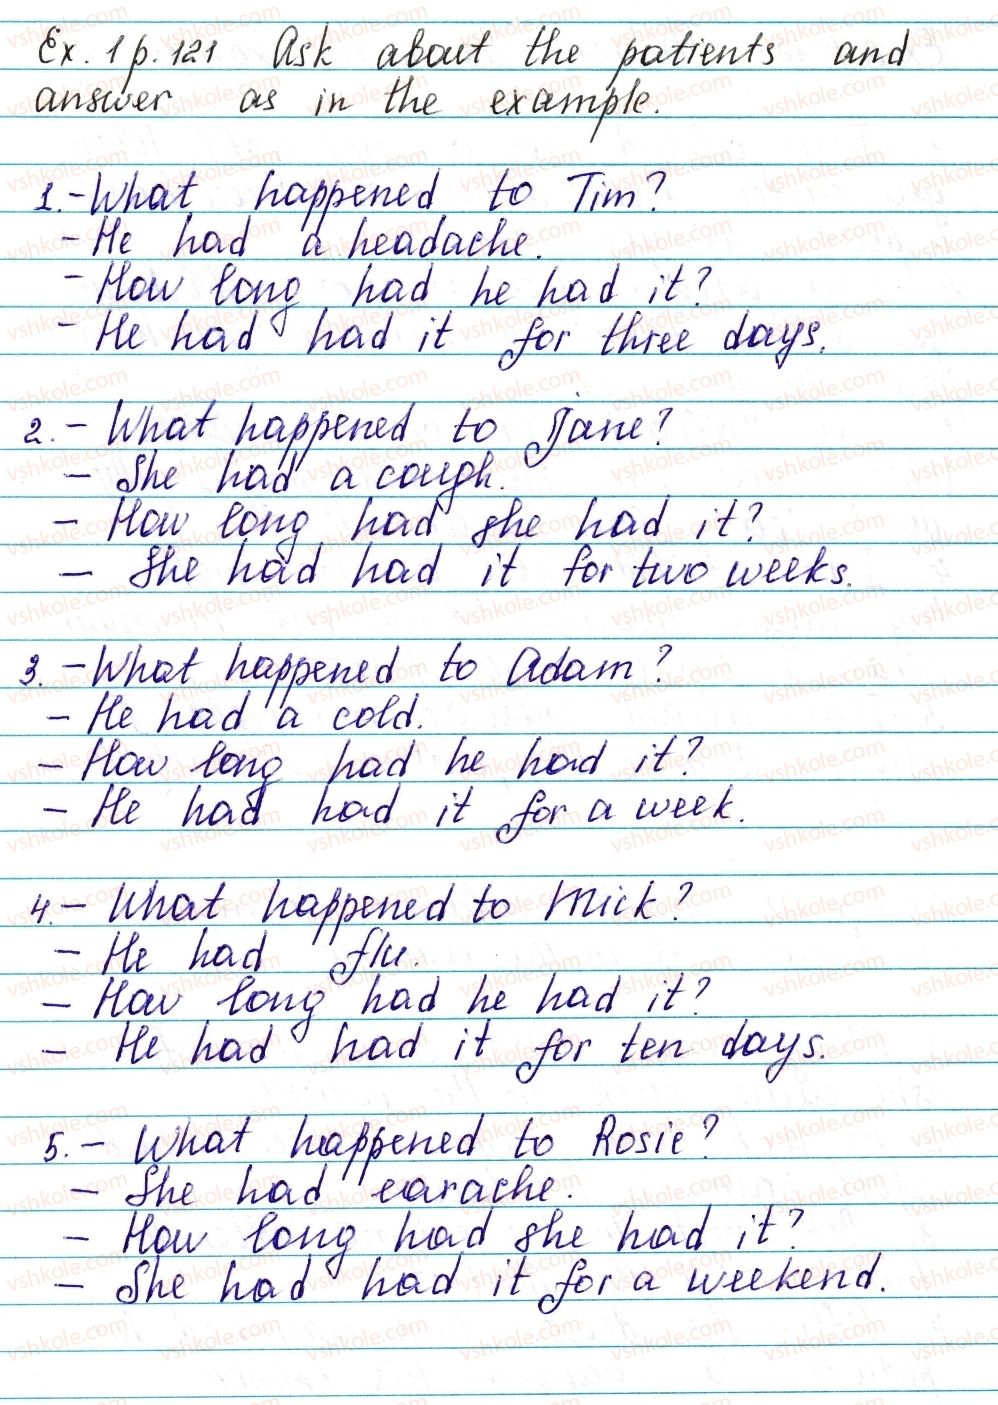 Ex. 1 p. 121 Ask about the patients and
answer as in the example.
1. - What happened to Tim?
- He had a headache.
- How long had he had it?
- He had had it for three days.
2. - What happened to Jane?
- She had a cough.
- How long had she had it?
- She had had it for two weeks.
3. - What happened to Adam?
- He had a cold.
- How long had he had it?
- He had had it for a week.
4. - What happened to Mick?
- He had flu.
- How long had he had it?
- He had had it for ten days.
5. - What happened to Rosie?
- She had earache.
- How long had she had it?
- She had had it for a weekend.
vshkole.com